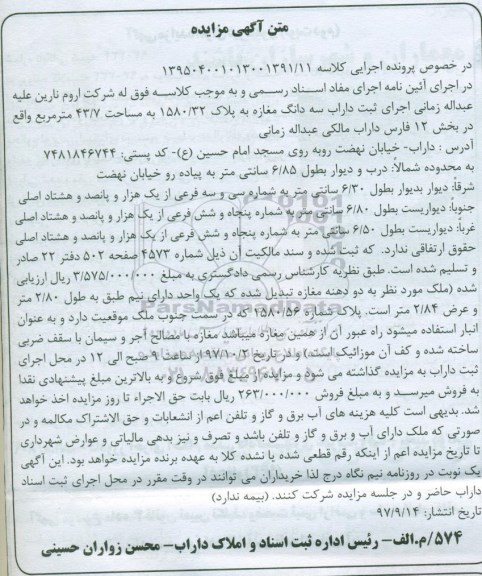 متن آگهی مزایده
در خصوص پرونده اجرایی کلاسه ۱۳۹۵۰۴۰۰۱۰۱۳۰۰۱۳۹۱/۱۱
در اجرای آئین نامه اجرای مفاد اسناد رسمی و به موجب کلاسه فوق له شرکت اروم نارین علیه
عبداله زمانی اجرای ثبت داراب سه دانگ مغازه به پلاک ۱۵۸۰/۳۲ به مساحت ۴۳/۷ مترمربع واقع
در بخش ۱۲ فارس داراب مالکی عبداله زمانی
آدرس : داراب- خیابان نهضت روبه روی مسجد امام حسین (ع)- کد پستی: ۷۴۸۱۸۴۶۷۴۴
به محدوده شمالاً: درب و دیوار بطول ۶/۸۵ سانتی متر به پیاده رو خیابان نهضت
شرقاً: دیوار بدیوار بطول ۶/۳۰ سانتی متر به شماره سی و سه فرعی از یک هزار و پانصد و هشتاد اصلی
جنوباً: دیواریست بطول ۶/۸۰ سانتی متر به شماره پنجاه و شش فرعی از یک هزار و پانصد و هشتاد اصلی
غرباً: دیواریست بطول ۶/۵۰ سانتی متر به شماره پنجاه و شش فرعی از یک هزار و پانصد و هشتاد اصلی
حقوق ارتفاقی ندارد. که ثبت شده و سند مالکیت آن ذیل شماره ۴۵۷۳ صفحه ۵۰۲ دفتر ۲۲ صادر
و تسلیم شده است. طبق نظریه کارشناس رسمی دادگستری به مبلغ ۳/۵۷۵/۰۰۰/۰۰۰ ریال ارزیابی
شده (ملک مورد نظر به دو دهنه مغازه تبدیل شده که یک واحد دارای نیم طبق به طول ۲/۸۰ متر
و عرض ۲/۸۴ متر است. پلاک شماره ۱۵۸۰/۵۶ که در سمت جنوب ملک موقعیت دارد و به عنوان
انبار استفاده میشود راه عبور آن از همین مغازه میباشد مغازه با مصالح آجر و سیمان با سقف ضربی
ساخته شده و کف آن موزائیک است) و در تاریخ ۹۷/۱۰/۲ از ساعت ۹ صبح الی ۱۲ در محل اجرای
ثبت داراب به مزایده گذاشته می شود و مزایده از مبلغ فوق شروع و به بالاترین مبلغ پیشنهادی نقدا
به فروش میرسد و به مبلغ فروش ۲۶۳/۰۰۰/۰۰۰ ریال بابت حق الاجراء تا روز مزایده اخذ خواهد
شد. بدیهی است کلیه هزینه های آب برق و گاز و تلفن اعم از انشعابات و حق الاشتراک مکالمه و در
صورتی که ملک دارای آب و برق و گاز و تلفن باشد و تصرف و نیز بدهی مالیاتی و عوارض شهرداری
تا تاریخ مزایده اعم از اینکه رقم قطعی شده یا نشده کلا به عهده برنده مزایده خواهد بود. این آگهی
یک نوبت در روزنامه نیم نگاه درج لذا خریداران می توانند در وقت مقرر در محل اجرای ثبت اسناد
داراب حاضر و در جلسه مزایده شرکت کنند. (بیمه ندارد)
تاریخ انتشار: ۹۷/۹/۱۴
۵۷۴/م.الف- رئیس اداره ثبت اسناد و املاک داراب- محسن زواران حسینی